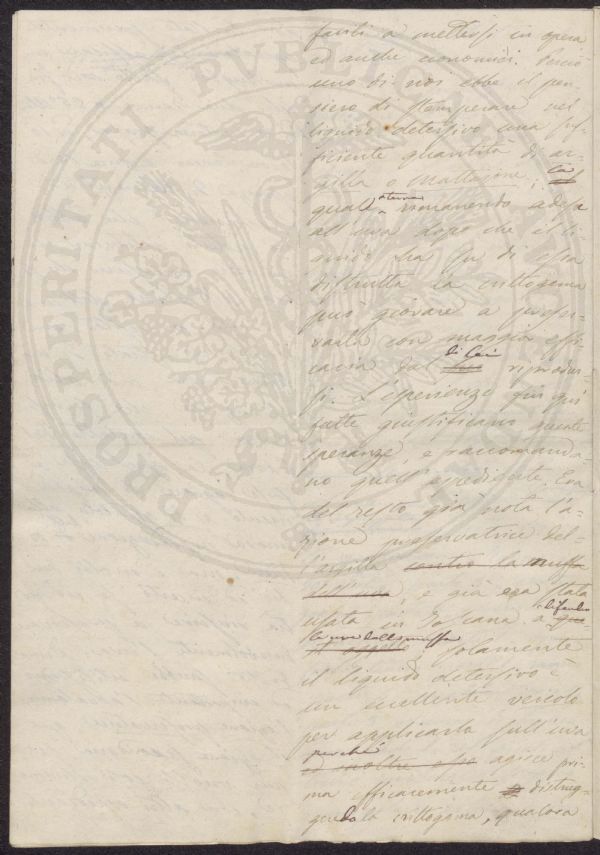 facili a mettersi in opera
ed anche economici. Perciò
uno di noi ebbe il pen-
siero di stemperare nel
liquido detersivo una suf-
ficiente quantità di ar-
gilla o mattajone; la
quale rimanendo adesa
all'uva dopo che il li-
quido ha su di essa
distrutta la crittogama
può giovare a preser-
varla con maggior effi-
cacia dal di lei riprodur-
si. L'esperienze fin qui
fatte giustificano queste
speranze, e raccomanda-
no quell'espediente. Era
del resto già nota l'a-
zione preservatrice del-
l'argilla contro la muffa
dell'uva, e già era stata
usata in Toscana a difender
le uve dalla muffa solamente
il liquido detersivo è
un eccellente veicolo
per applicarla sull'uva
perché
ed inoltre esso agisce pri-
ma efficacemente distrug-
gendo la crittogama, qualora
PROSPERITATI PVBLICAE